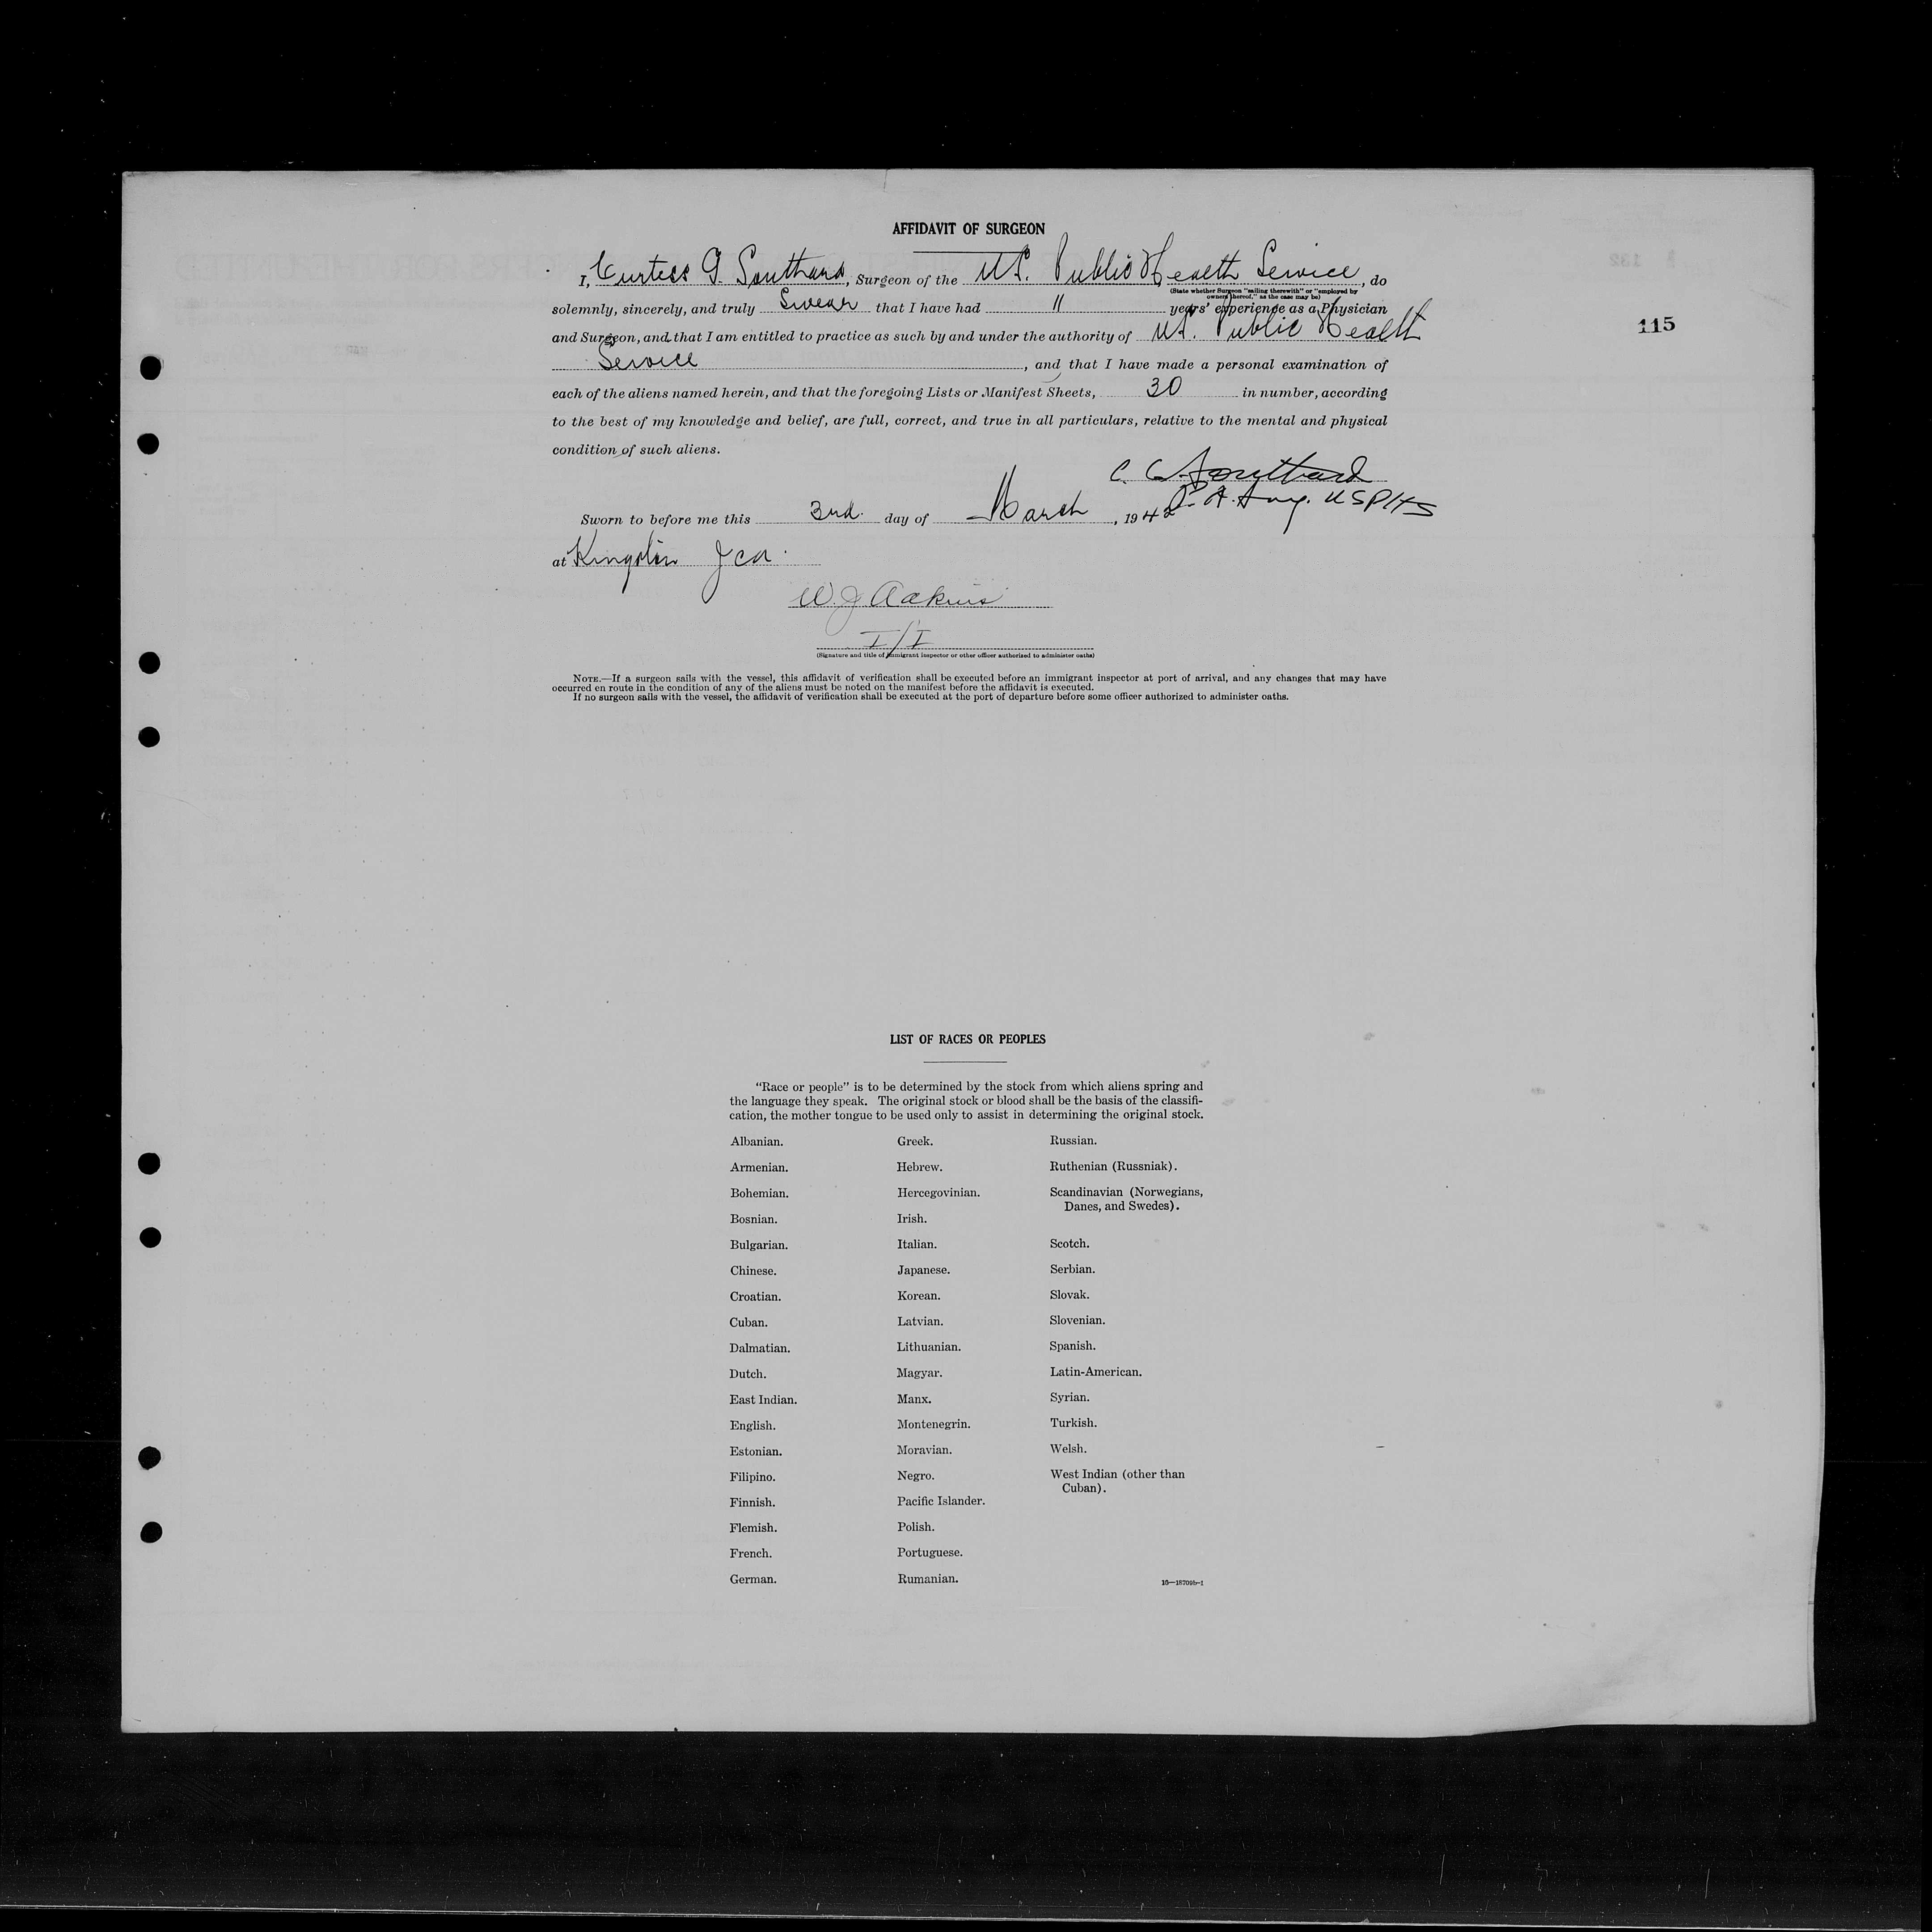 AFFIDAVIT OF SURGEON
I, Curtess G. Southard, Surgeon of the U.S. Public Health Service, do
(State whether Surgeon "sailing therewith" or "employed by
owners thereof," as the case may be)
solemnly, sincerely, and truly Swear that I have had 11 years' experience as a Physician
115
and Surgeon, and that I am entitled to practice as such by and under the authority of U.S. Public Health
Service, and that I have made a personal examination of
each of the aliens named herein, and that the foregoing Lists or Manifest Sheets, 30 in number, according
to the best of my knowledge and belief, are full, correct, and true in all particulars, relative to the mental and physical
condition of such aliens.
C. G. Southard
P. A. Surg. USPHS
Sworn to before me this 3rd. day of March, 1942
at Kingston Jca.
W. J. Adkins
I/I
(Signature and title of immigrant inspector or other officer authorized to administer oaths)
NOTE.—If a surgeon sails with the vessel, this affidavit of verification shall be executed before an immigrant inspector at port of arrival, and any changes that may have
occurred en route in the condition of any of the aliens must be noted on the manifest before the affidavit is executed.
If no surgeon sails with the vessel, the affidavit of verification shall be executed at the port of departure before some officer authorized to administer oaths.
LIST OF RACES OR PEOPLES
"Race or people" is to be determined by the stock from which aliens spring and
the language they speak. The original stock or blood shall be the basis of the classifi-
cation, the mother tongue to be used only to assist in determining the original stock.
Albanian.
Armenian.
Bohemian.
Bosnian.
Bulgarian.
Chinese.
Croatian.
Cuban.
Dalmatian.
Dutch.
East Indian.
English.
Estonian.
Filipino.
Finnish.
Flemish.
French.
German.
Greek.
Hebrew.
Hercegovinian.
Irish.
Italian.
Japanese.
Korean.
Latvian.
Lithuanian.
Magyar.
Manx.
Montenegrin.
Moravian.
Negro.
Pacific Islander.
Polish.
Portuguese.
Rumanian.
Russian.
Ruthenian (Russniak).
Scandinavian (Norwegians,
Danes, and Swedes).
Scotch.
Serbian.
Slovak.
Slovenian.
Spanish.
Latin-American.
Syrian.
Turkish.
Welsh.
West Indian (other than
Cuban).